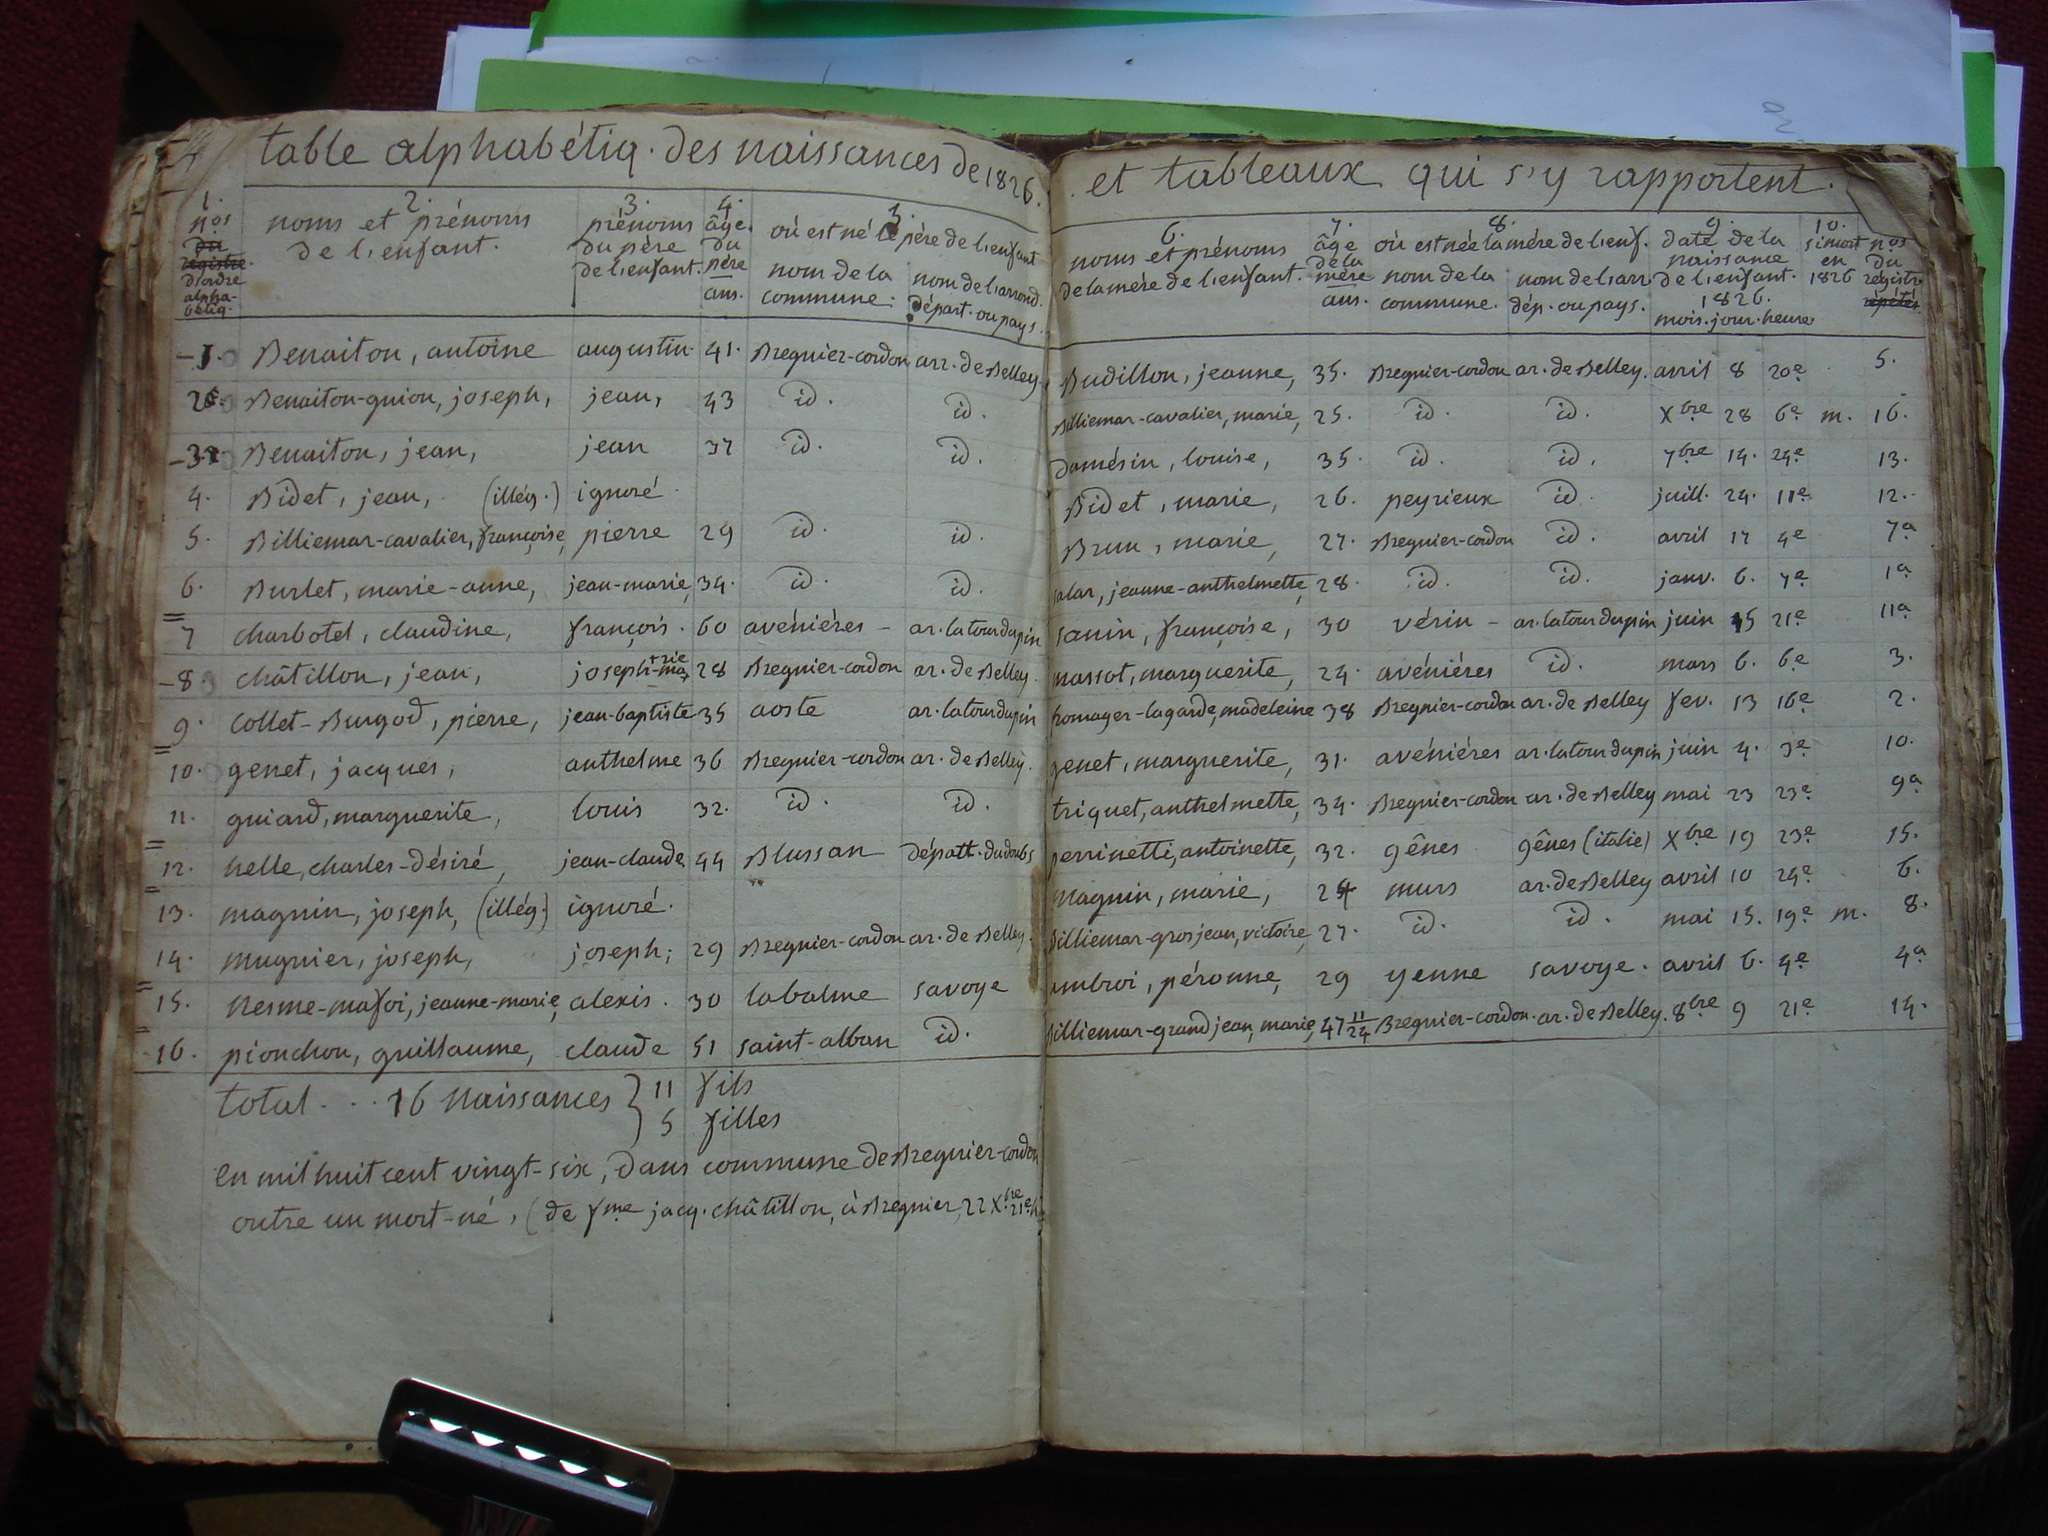 table alphabétiq. des naissances de 1826. et tableaux qui s'y rapportent.
1. nos du registre d'ordre alphabétiq.
2. noms et prénoms de l'enfant.
3. prénoms du père de l'enfant.
4. âge du père ans.
5. où est né le père de l'enfant
nom de la commune. nom de l'arrond. départ. ou pays.
6. noms et prénoms de la mére de l'enfant.
7. âge de la mère ans.
8. où est née la mére de l'enf.
nom de la commune. nom de l'arr. dép. ou pays.
9. date de la naissance de l'enfant. 1826. mois. jour. heure
10. si mort en 1826
nos du régistre répétés
1. Benaiton, antoine augustin. 41. Bregnier-cordon arr. de Belley, Budillon, jeanne, 35. Bregnier-cordon ar. de Belley. avril 8 20e 5.
2. Benaiton-guion, joseph, jean, 43 id. id. Billiemar-cavalier, marie, 25. id. id. Xbre 28 6e m. 16.
3. Benaiton, jean, jean 37 id. id. damésin, louise, 35. id. id. 7bre 14. 24e 13.
4. Bidet, jean, (illég.) ignoré. Bidet, marie, 26. peyrieux id. juill. 24. 11e 12.
5. Billiemar-cavalier, françoise, pierre 29 id. id. Brun, marie, 27. Bregnier-cordon id. avril 17 4e 7a
6. Burlet, marie-anne, jean-marie, 34. id. id. salar, jeanne-anthelmette, 28. id. id. janv. 6. 7e 1a
7 charbotel, claudine, françois. 60 avéniéres - ar. latourdupin sanin, françoise, 30 vérin - ar. latourdupin juin 15 21e 11a
8 châtillon, jean, joseph-marie 28 Bregnier-cordon ar. de Belley. massot, marguerite, 24. avéniéres id. mars 6. 6e 3.
9. collet-Burgod, pierre, jean-baptiste 35 aoste ar. latourdupin fromager-lagarde, madeleine 38 Bregnier-cordon ar. de Belley fev. 13 16e 2.
10. genet, jacques, anthelme 36 Bregnier-cordon ar. de Belley. genet, marguerite, 31. avéniéres ar. latourdupin juin 4. 3e 10.
11. guiard, marguerite, louis 32. id. id. triquet, anthelmette, 34. Bregnier-cordon ar. de Belley mai 23 23e 9a
12. helle, charles-désiré, jean-claude 44 Blussan départt. du doubs perrinetti, antoinette, 32. gênes gênes (italie) Xbre 19 23e 15.
13. magnin, joseph, (illég.) ignoré. magnin, marie, 24 murs ar. de Belley avril 10 24e 6.
14. mugnier, joseph, joseph, 29 Bregnier-cordon ar. de Belley. Billiemar-grosjean, victoire, 27. id. id. mai 15. 19e m. 8.
15. nesme-mafoi, jeanne-marie, alexis. 30 labalme savoye ambroi, péronne, 29 yenne savoye. avril 6. 4e 4a
16. pionchon, guillaume, claude 51 saint-alban id. Billiemar-grand jean, marie, 47 11/24 Bregnier-cordon. ar. de Belley. 8bre 9 21e 14.
total . . . 16 naissances } 11 fils
5 filles
en mil huit cent vingt-six, dans commune de Bregnier-cordon
outre un mort-né, (de fme jacq. châtillon, à Bregnier, 22 Xbre 21e h.